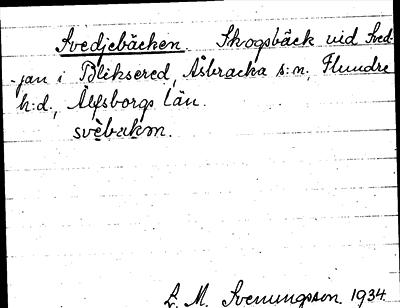 Svedjebäcken. Skogsbäck vid Sved-
jan i Bliksered, Åsbracka s:n, Flundre
h:d., Älfsborgs län.
svèbakm.
E. M. Svenungsson 1934